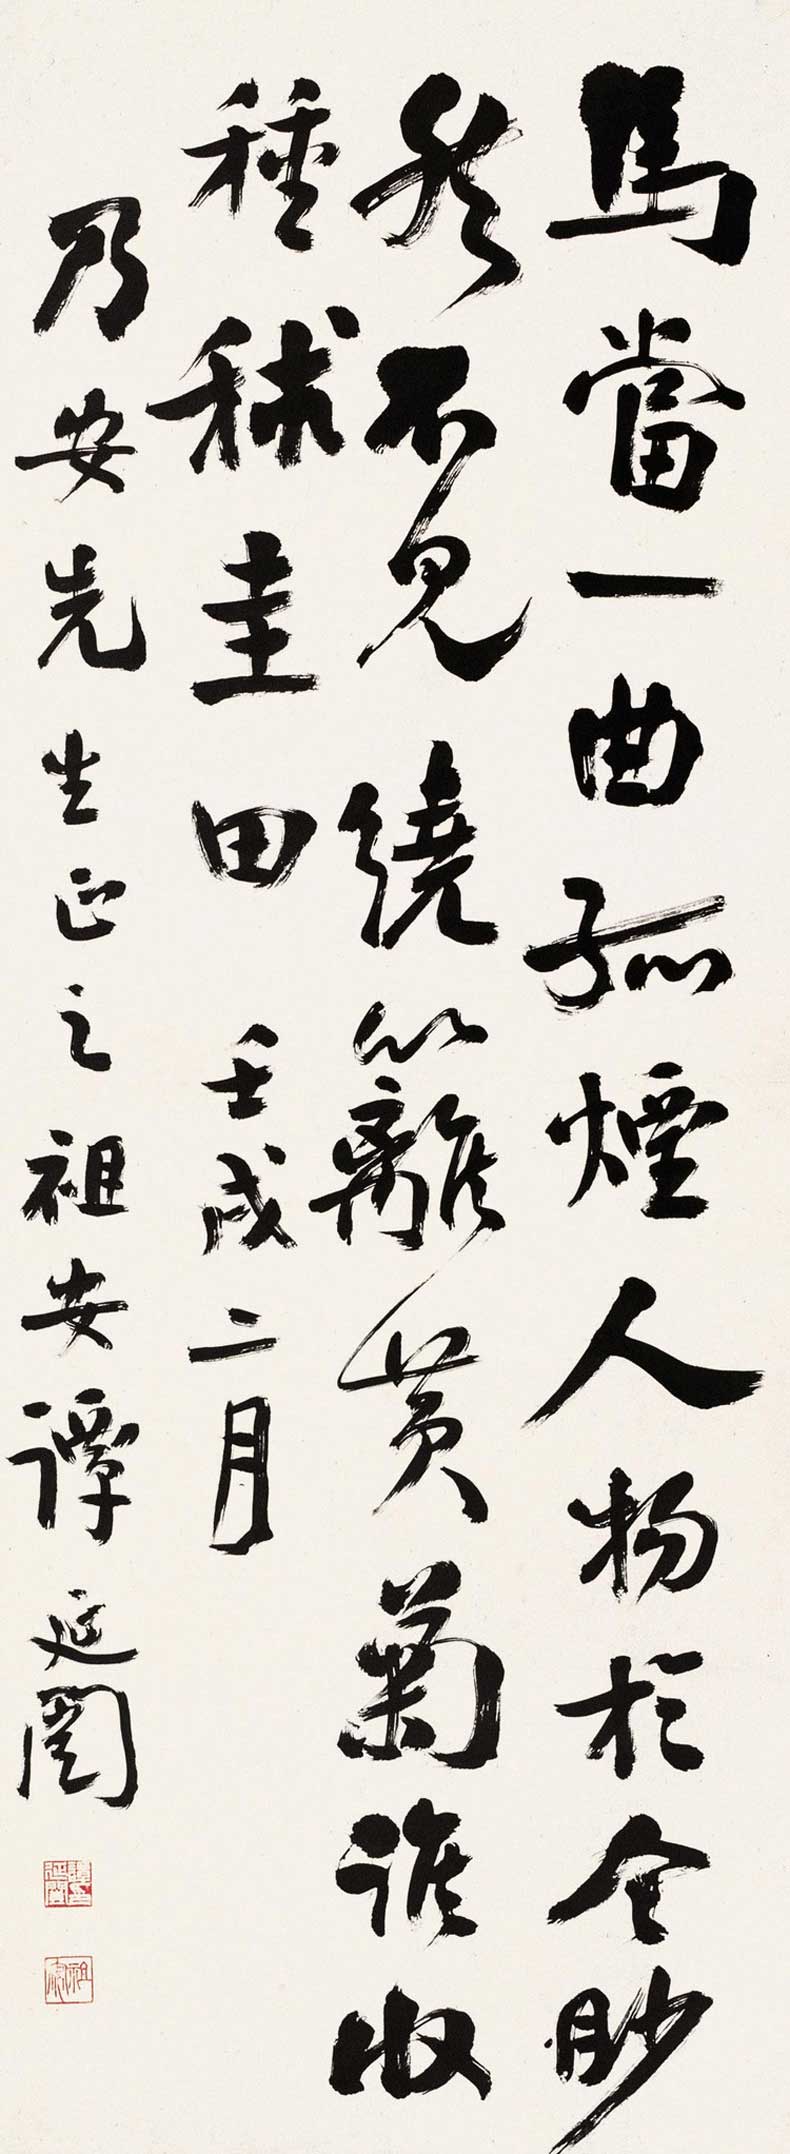 馬當一曲孤煙人物於今眇
然不見繞籬黃菊誰收
種秫圭田 壬戌二月
乃安先生正之 祖安譚延闓